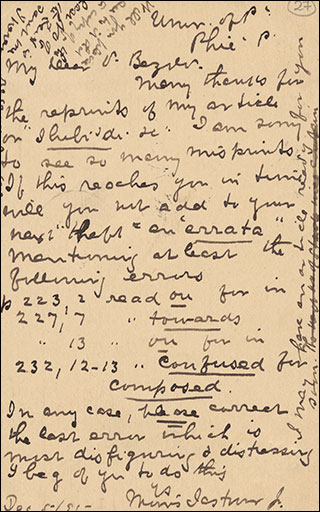 27
Univ. of P.
Phil. P.
My dear D. Bezold.
Many thanks for
the reprints of my article
on "
I am sorry
to see so many misprints.
If this reaches you in time
will you not add to your
next "heft" an "errata"
mentioning at least the
following errors
p 223, 2 read on for in
227, 7 " towards
" 13 " on for in
232, 12-13 " confused for
composed.
In any case, please correct
the last error which is
most disfiguring & distressing
I beg of you to do this
Yrs
Morris Jastrow Jr.
I may have an article ready for you